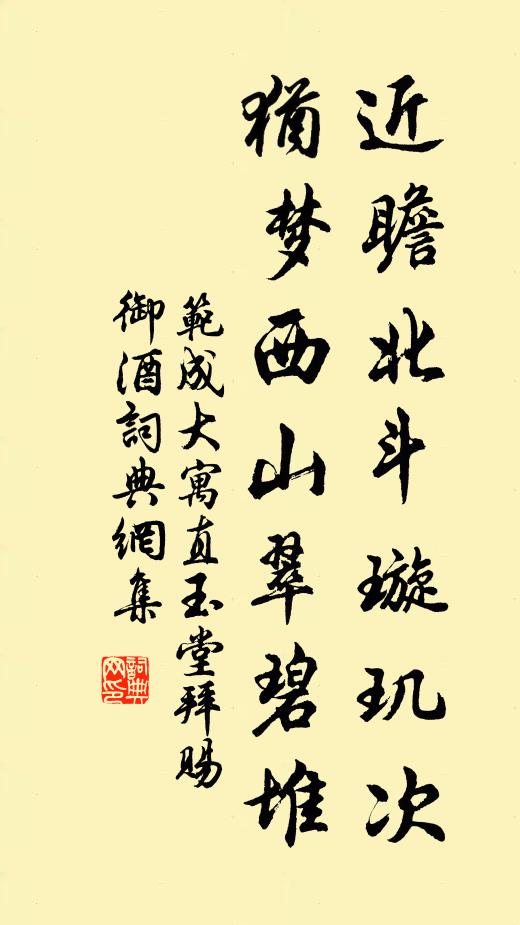 近瞻北斗璇玑次
犹梦西山翠碧堆
範成大寓直玉堂拜賜
御酒詞典網集
詞典网印